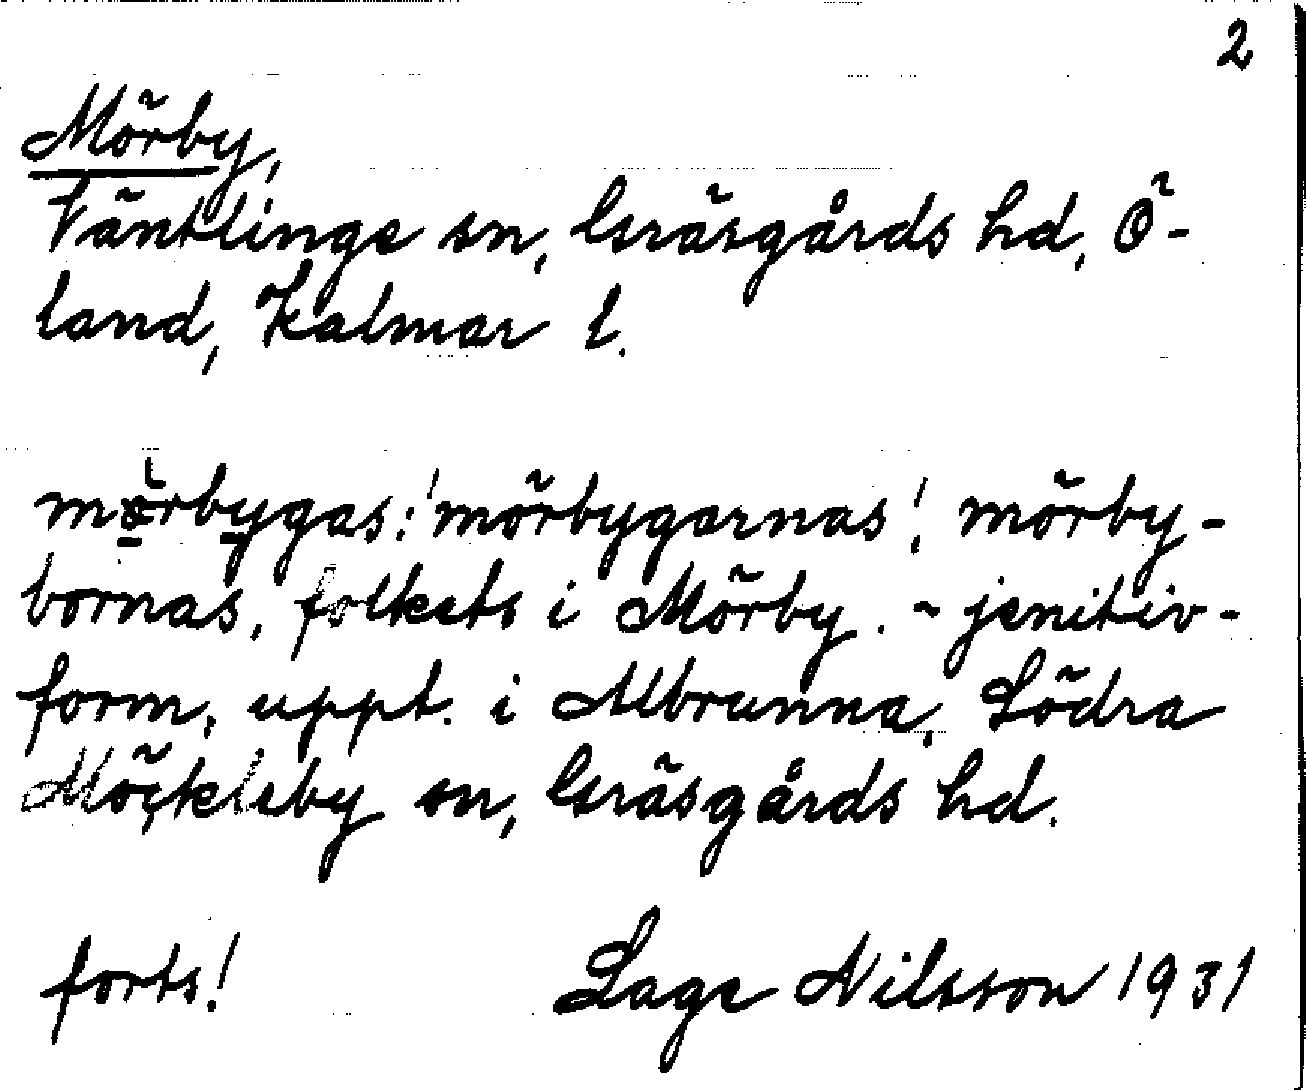 2
Mörby,
Väntlinge sn, Gräsgårds hd, Ö-
land, Kalmar l.
mörbygas: 'mörbygarnas', mörby-
bornas, folkets i Mörby. ~ jenitiv-
form, uppt. i Albrunna, Södra
Möckleby sn, Gräsgårds hd.
forts! Lage Nilsson 1931